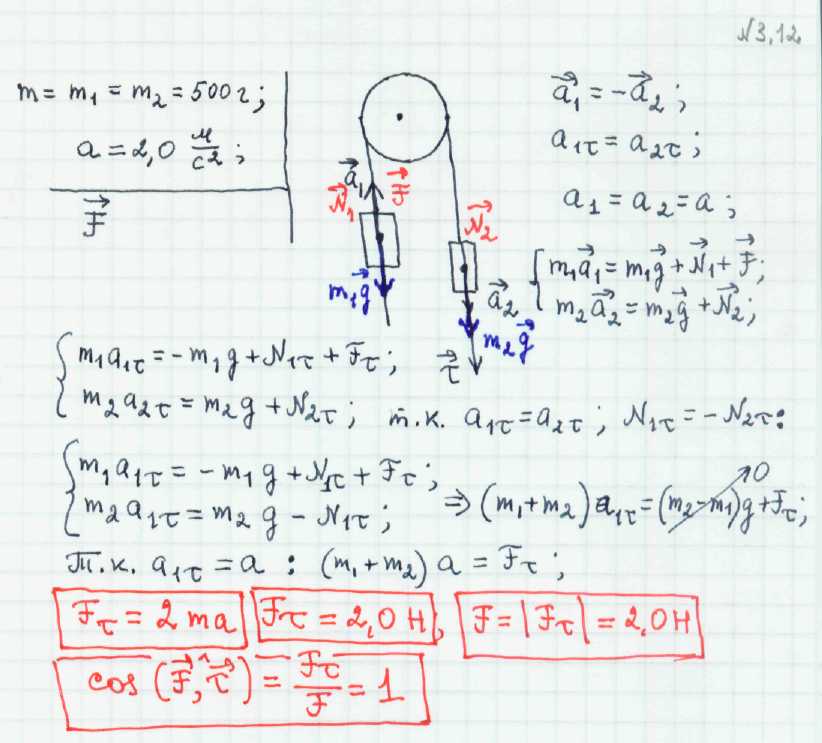 №3.12
m = m₁ = m₂ = 500 г;
a = 2,0 м/с²;
F⃗
a⃗₁ = -a⃗₂;
a₁τ = a₂τ;
a₁ = a₂ = a;
a⃗₁
F⃗
N⃗₁
N⃗₂
m₁g⃗
a⃗₂
m₂g⃗
τ⃗
{ m₁a⃗₁ = m₁g⃗ + N⃗₁ + F⃗;
m₂a⃗₂ = m₂g⃗ + N⃗₂;
{ m₁a₁τ = -m₁g + N₁τ + Fτ;
m₂a₂τ = m₂g + N₂τ; т.к. a₁τ = a₂τ; N₁τ = -N₂τ:
{ m₁a₁τ = -m₁g + N₁τ + Fτ;
m₂a₁τ = m₂g - N₁τ; ⇒ (m₁+m₂)a₁τ = (m₂-m₁)g + Fτ;
0
Т.к. a₁τ = a : (m₁+m₂)a = Fτ;
Fτ = 2ma Fτ = 2,0 Н, F = |Fτ| = 2,0 Н
cos (F⃗,^τ⃗) = Fτ/F = 1